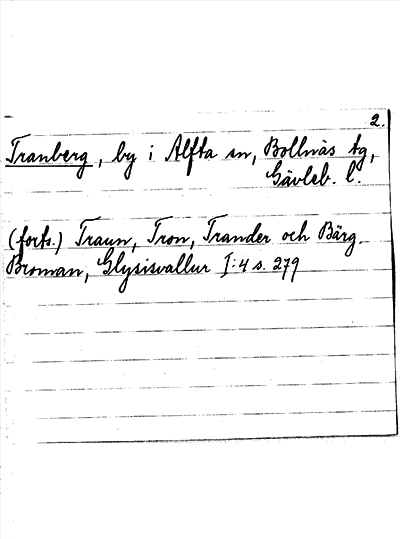 2.
Tranberg, by i Alfta sn, Bollnäs tg,
Gävleb. l.
(forts.) Traun, Tron, Trander och Bärg.
Broman, Glysisvallur I:4 s. 279